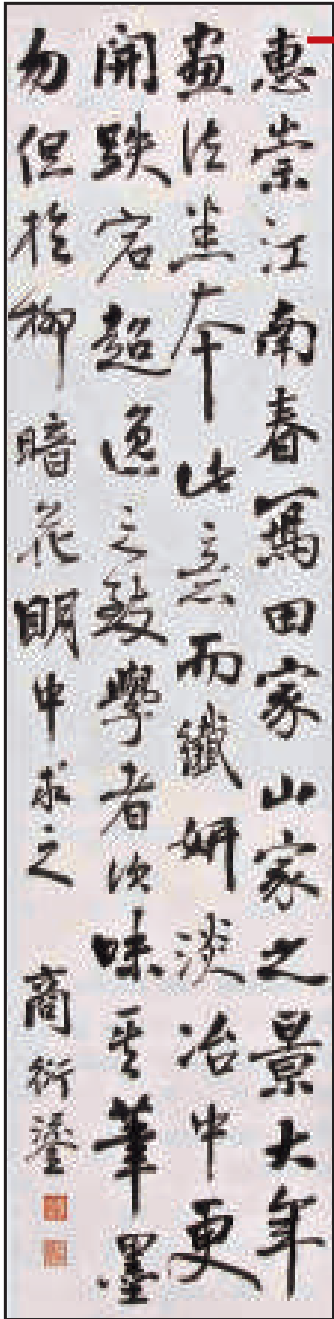 惠崇江南春寫田家山家之景大年
畫法悉本此意而纖妍淡冶中更
開跌宕超逸之致學者須味其筆墨
勿但於柳暗花明中求之 商衍鎏